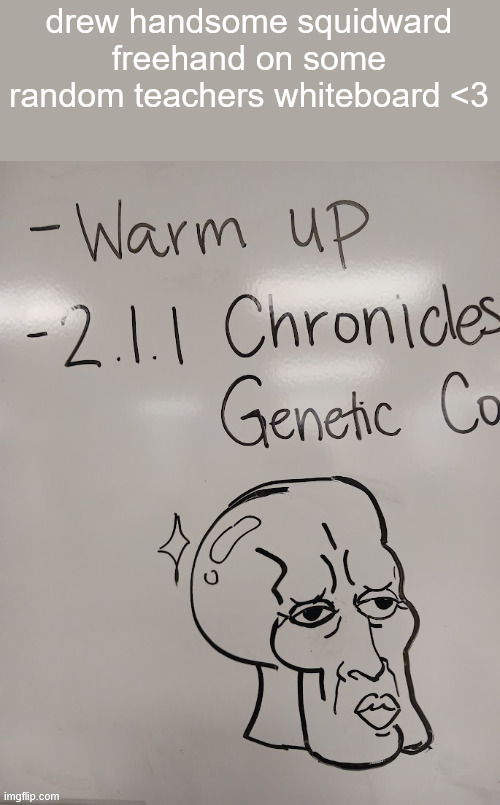 drew handsome squidward
freehand on some
random teachers whiteboard <3
- Warm up
- 2.1.1 Chronicles
Genetic Co
imgflip.com